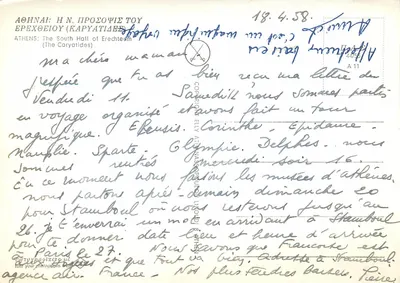 ΑΘΗΝΑΙ: Η Ν. ΠΡΟΣΟΨΙΣ ΤΟΥ
ΕΡΕΧΘΕΙΟΥ (ΚΑΡΥΑΤΙΔΕΣ)
ATHENS: The South Hall of Erechteion
(The Caryatides)
18.4.58.
Affectueux baisers
c'est un magnifique voyage
A 11
ma chère maman
j'espère que tu as bien reçu ma lettre du
Vendredi 11. Samedi 12 nous sommes partis
en voyage organisé et avons fait un tour
magnifique. Eleusis. Corinthe. Epidaure.
Nauplie. Sparte. Olympie. Delphes. nous
sommes rentrés mercredi soir 16.
En ce moment nous faisons les musées d'athènes.
nous partons après-demain dimanche 20
pour Stamboul où nous resterons jusqu'au
26. Je t'enverrai un mot en arrivant à Stamboul
pour te donner date lieu et heure d'arrivée
à Paris le 27. Nous savons que Françoise est
et que tout va bien. Adresse à Stamboul:
agence air France. Nos plus tendres baisers. Pierre